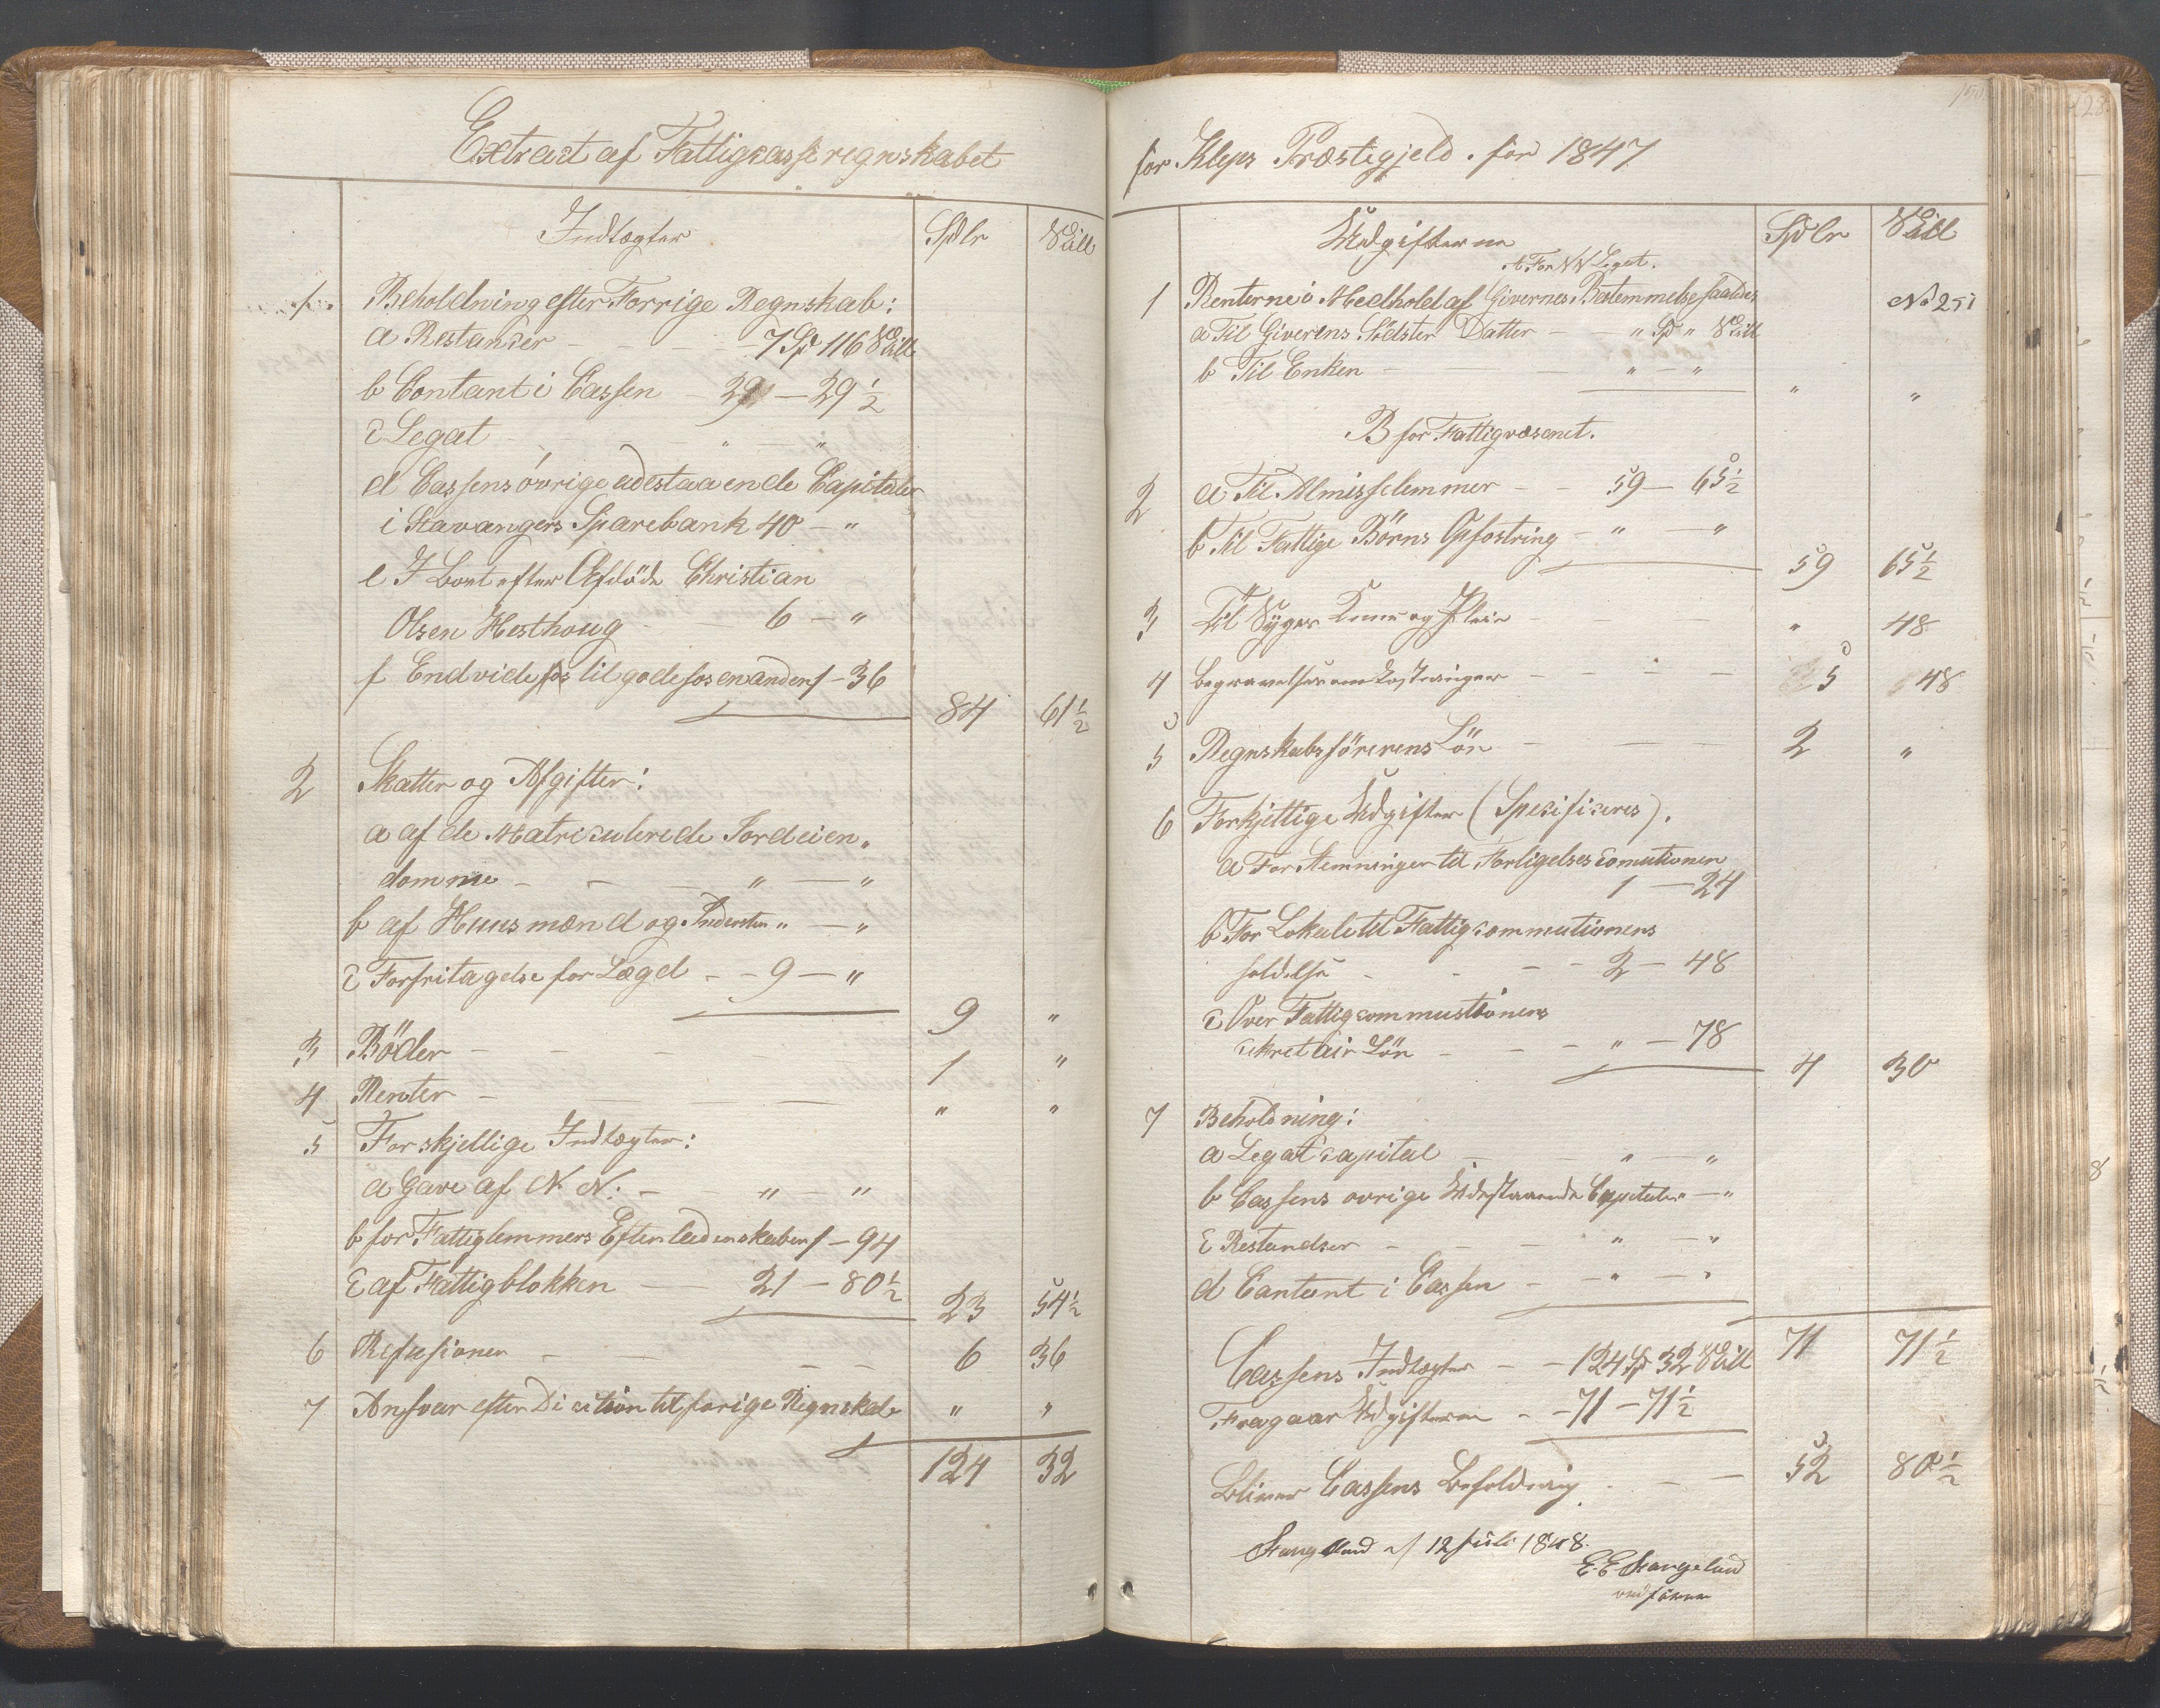 Extract af Fattigcasseregnskabet
Indtægter Spdlr Skill
1. Beholdning efter Forrige Regnskab:
a Restancer - - - 7 Sp 116 Skill
b Contant i Cassen - 29 - 29 1/2
c Legat - - " "
d Cassens övrige udestaaende Capitaler
i Stavangers Sparebank 40 - "
e I Boet efter Afdöde Christian
Olsen Hesthoug - - 6 - "
f Endvidere til gode hos en anden 1 - 36
84 61 1/2
2 Skatter og Afgifter:
a af de Matriculerede Jordeien-
domme - - - " - "
b af Huusmænd og Inderster " - "
c Forfritagelse for Lægd - - 9 - "
9 "
3 Böder - - - - 1 "
4 Renter - - - - " "
5 Forskjellige Indtægter:
a Gave af N. N: - " - "
b for Fattiglemmers Efterladenskaber 1 - 94
c af Fattigblokken - 21 - 80 1/2
23 54 1/2
6 Refusioner - - - - 6 36
7 Ansvar efter til forige Regnskab " "
124 32
for Kleps Præstegjeld. for 1847
Udgifterne Spdlr Skill
A For NN Legat.
1 Renterne i Medhold af Givernes Bestemmelse No 251
a Til Giverens Datter - " Sp " Skill
b Til Enken - - - " - "
" "
B for Fattigvæsenet.
2 a Til Almisselemmer - - 59 - 65 1/2
b Til Fattige Börns Opfostring - " - "
59 65 1/2
3 Til Syges Kuur og Pleie - - - " 48
4 Begravelsesomkostninger - - - - 5 48
5 Regnskabsförerens Lön - - - 2 "
6 Forskjellige Udgifter (Specificeres).
a For Stemninger til Forligelsescomutionen
1 - 24
b For Lokale til Fattigcommutioners
holdelse - - - - 2 - 48
c Over Fattigcommustioners
sekretair Lön - - - " - 78
4 30
7 Beholdning:
a Legatcapital - - " - "
b Cassens ovrige Udestaaende Capitaler " - "
c Restandser - - - " - "
d Contant i Cassen - - " - "
71 71 1/2
Cassens Indtægter - - 124 Sp 32 Skill
Fragaar Udgifterne - - 71 - 71 1/2
Bliver Cassens Beholdning - - - 52 80 1/2
Stangeland d/ 12 Juli 1848.
E. E Stangeland